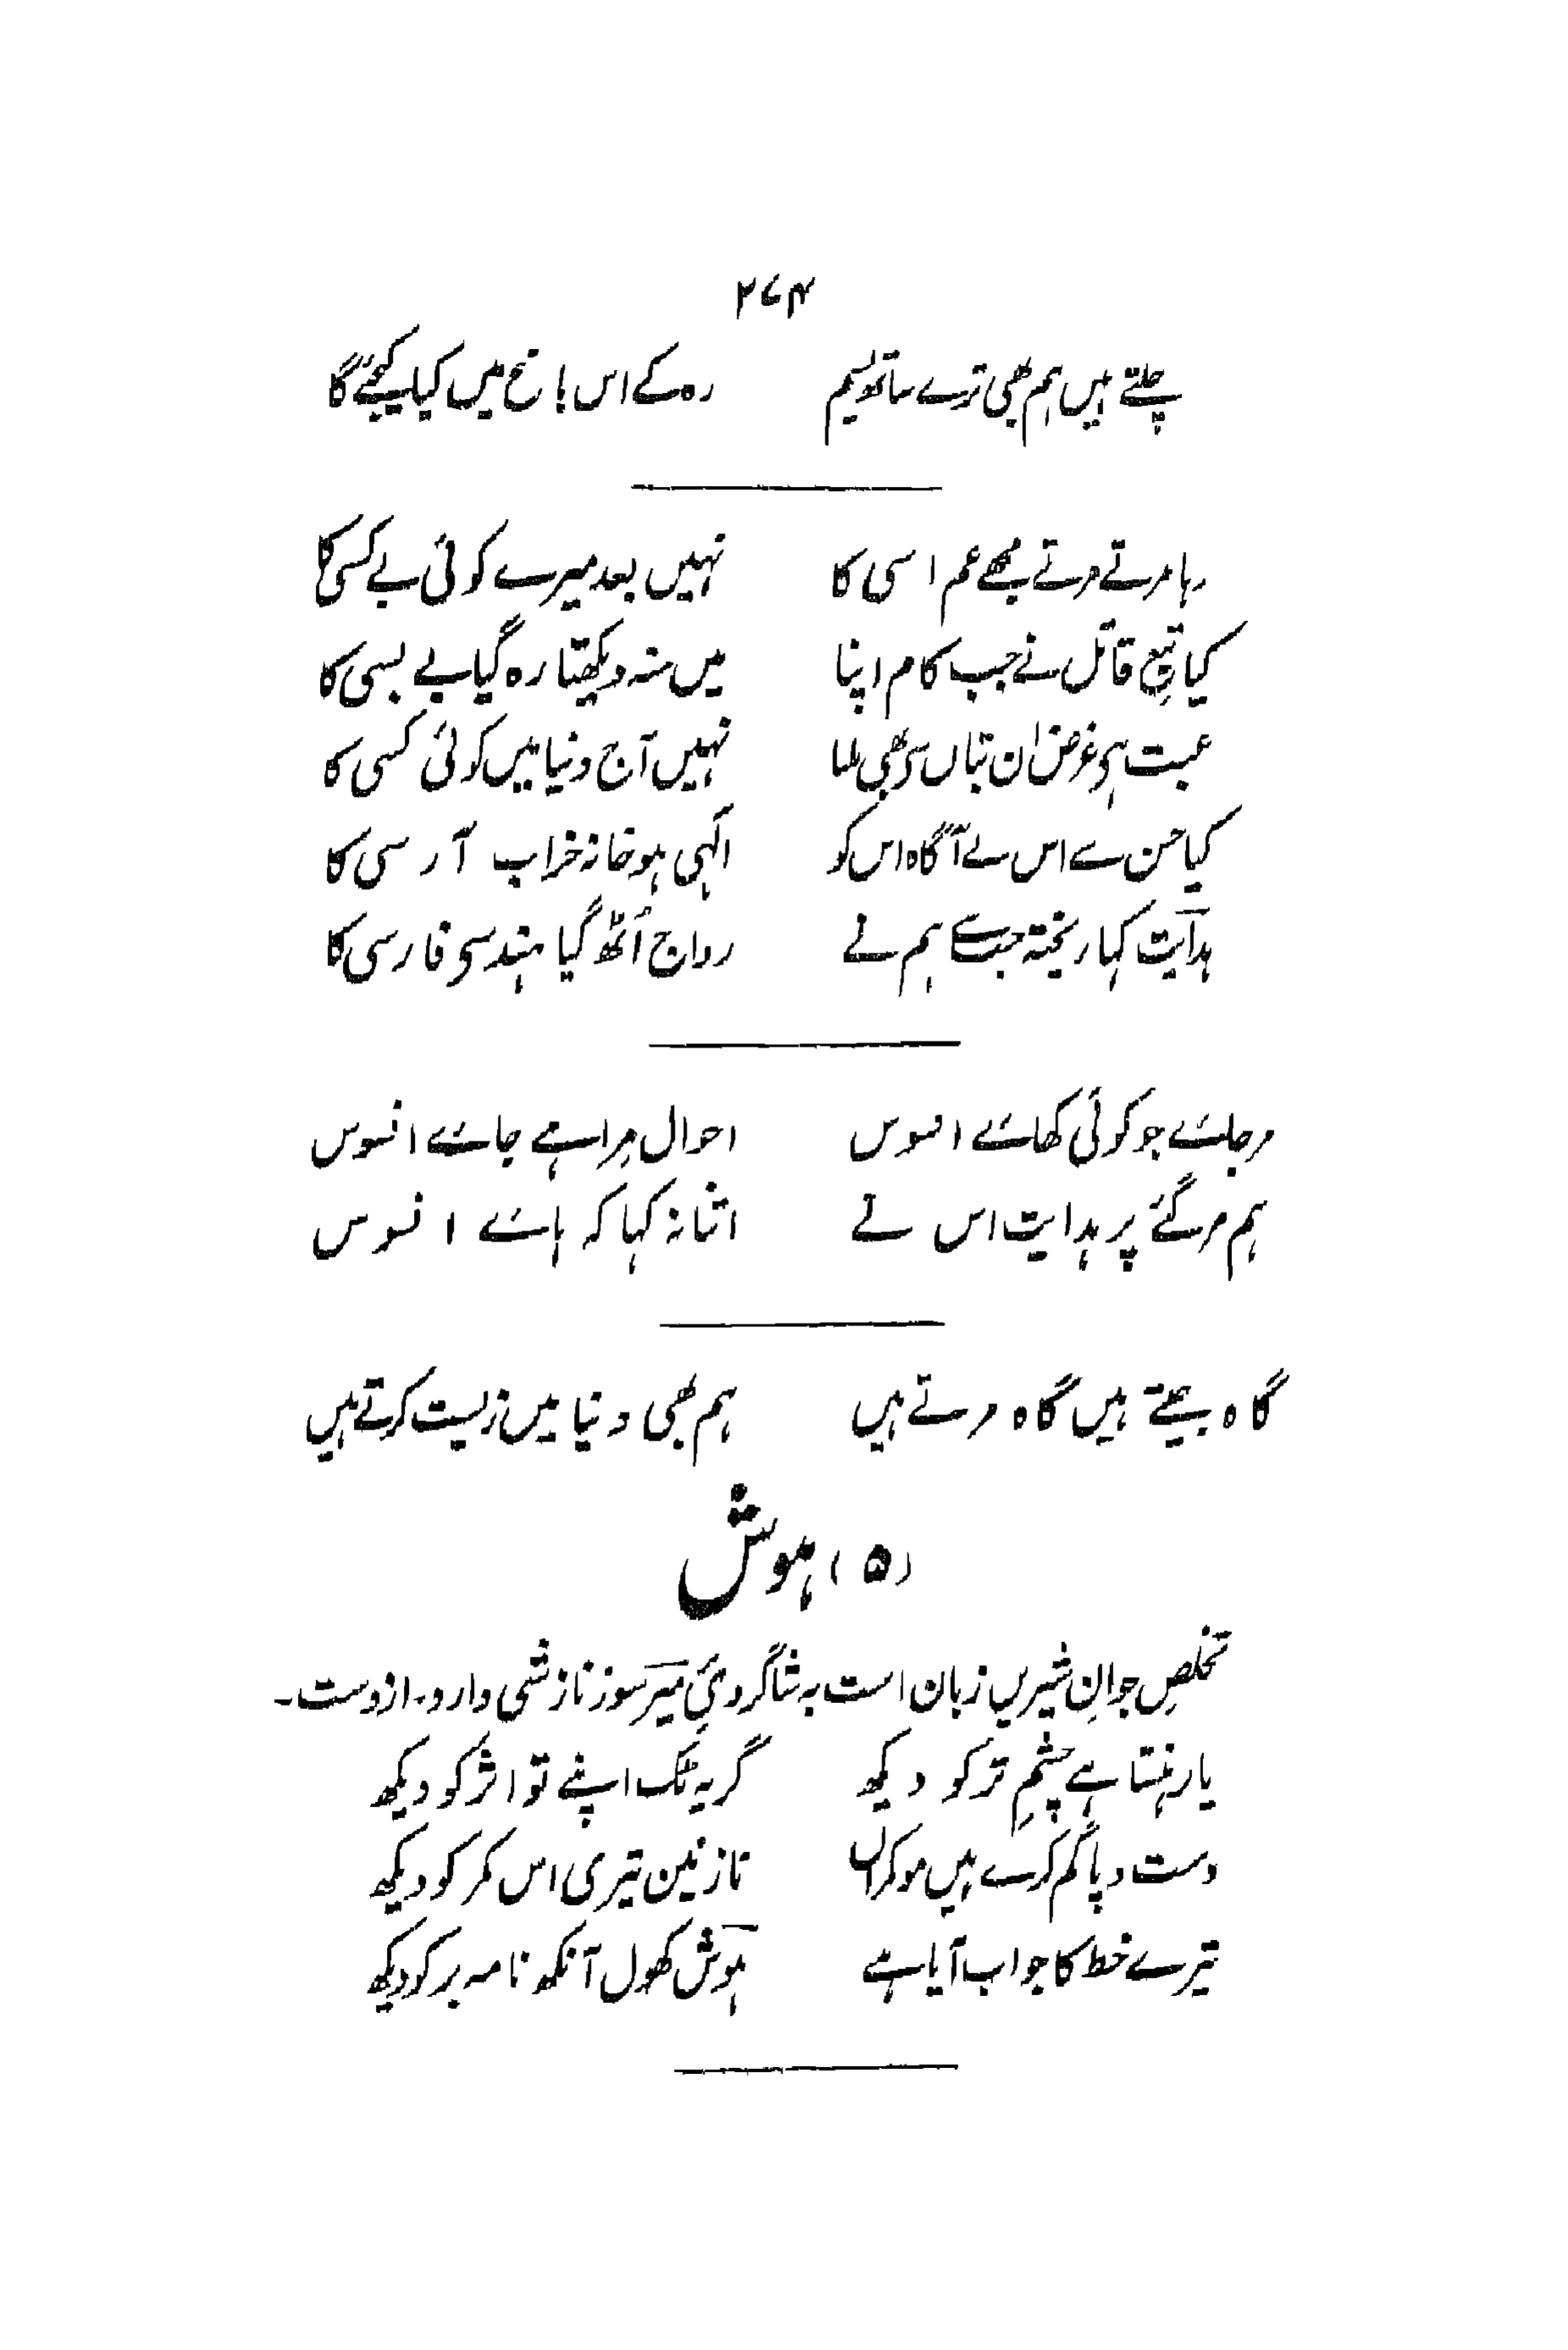 ۲۷۴
چلتے ہیں ہم بھی ترے ساتھ نسیم رہ کے اس باغ میں کیا کیجئے گا
رہا مرتے مرتے مجھے غم اسی کا نہیں بعد میرے کوئی بے کسی کا
کیا تیغِ قاتل نے جب کام اپنا میں منہ دیکھتا رہ گیا بے بسی کا
عبث ہی غرض ان بتاں سے بھی ملنا نہیں آج دنیا میں کوئی کسی کا
کیا حسن سے اس نے آگاہ اس کو الٰہی ہو خانہ خراب آرسی کا
ہدایت کہا ریختہ جب سے ہم نے رواج اُٹھ گیا ہند سے فارسی کا
مر جائے جو کوئی کھائے افسوس احوال مِرا ہے جائے افسوس
ہم مر گئے پر ہدایت اس نے اتنا نہ کہا کہ ہائے افسوس
گاہ جیتے ہیں گاہ مرتے ہیں ہم بھی دنیا میں زیست کرتے ہیں
(۵) ہوش
تخلصِ جوانِ شیریں زبان است بہ شاگردیِ میر سوز نازشی دارد۔ ازوست۔
یار ہنستا ہے چشمِ تر کو دیکھ گریہ ٹک اپنے تو اثر کو دیکھ
دست و پا گم کرے ہیں مو کمراں نازنین تیری اس کمر کو دیکھ
تیرے خط کا جواب آیا ہے ہوش کھول آنکھ نامہ بر کو دیکھ